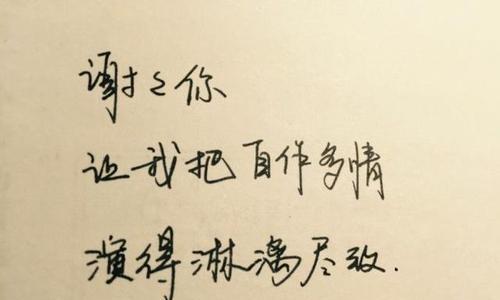 谢々你
让我把自作多情
演得淋漓尽致.